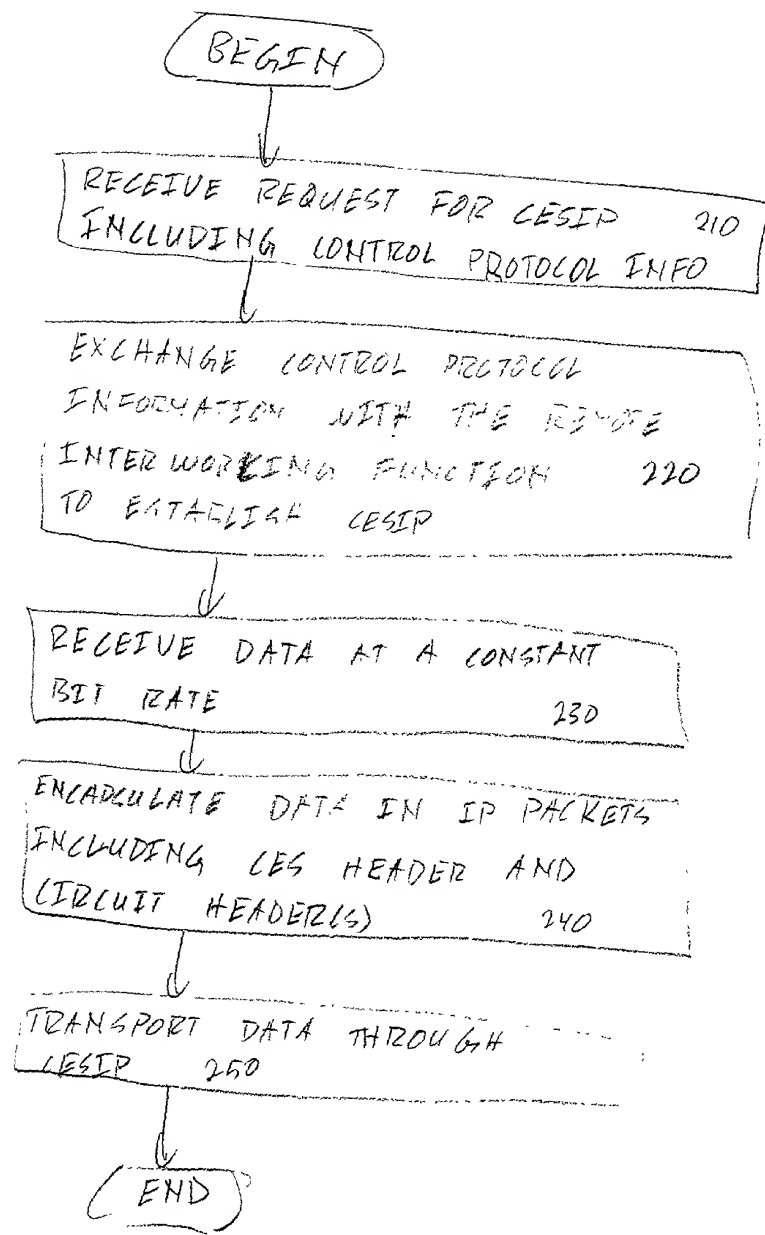 BEGIN
RECEIVE REQUEST FOR CESIP 210
INCLUDING CONTROL PROTOCOL INFO
EXCHANGE CONTROL PROTOCOL
INFORMATION WITH THE REMOTE
INTERWORKING FUNCTION 220
TO ESTABLISH CESIP
RECEIVE DATA AT A CONSTANT
BIT RATE 230
ENCAPCULATE DATA IN IP PACKETS
INCLUDING CES HEADER AND
CIRCUIT HEADER(S) 240
TRANSPORT DATA THROUGH
CESIP 250
END